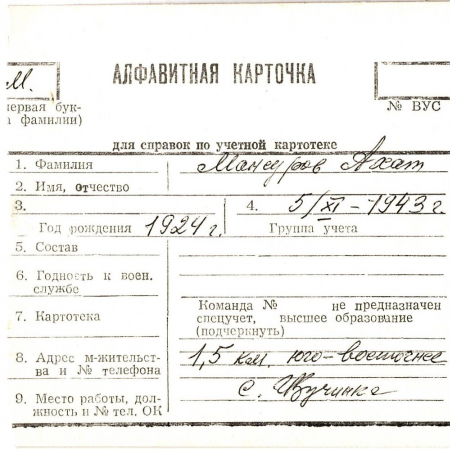 М.
АЛФАВИТНАЯ КАРТОЧКА
первая бук-
а фамилии)
№ ВУС
для справок по учетной картотеке
1. Фамилия
Мансуров Ахат
2. Имя, отчество
3.
Год рождения 1924 г.
4. 5/XI-1943 г.
Группа учета
5. Состав
6. Годность к воен.
службе
7. Картотека
Команда № не предназначен
спецучет, высшее образование
(подчеркнуть)
8. Адрес м-жительст-
ва и № телефона
1,5 км. юго-восточнее
с.
9. Место работы, дол-
жность и № тел. ОК